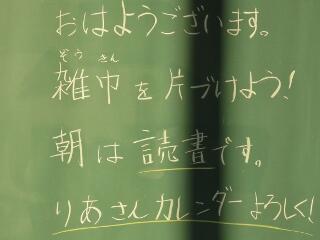 おはようございます。
ぞうきん
雑巾を片づけよう!
朝は読書です。
りあさんカレンダーよろしく!